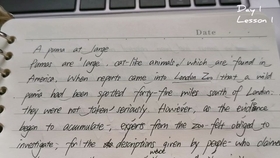 Day 1
Lesson 1
Date
A puma at large
Pumas are large, cat-like animals which are found in
America. When reports came into London Zoo that a wild
puma had been spotted forty-five miles south of London,
they were not taken seriously. However, as the evidence
began to accumulate, experts from the zoo felt obliged to
investigate; for the descriptions given by people who claimed